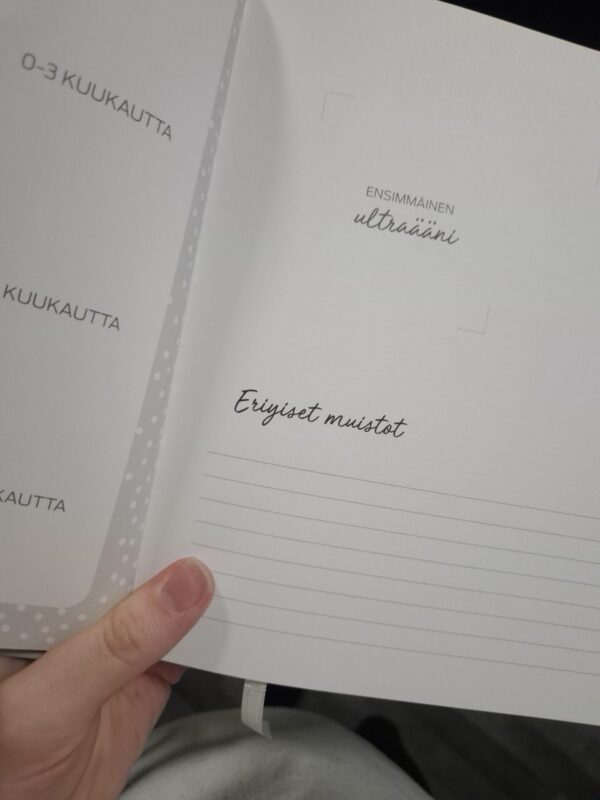 0-3 KUUKAUTTA
KUUKAUTTA
KAUTTA
ENSIMMÄINEN
ultraääni
Eriyiset muistot